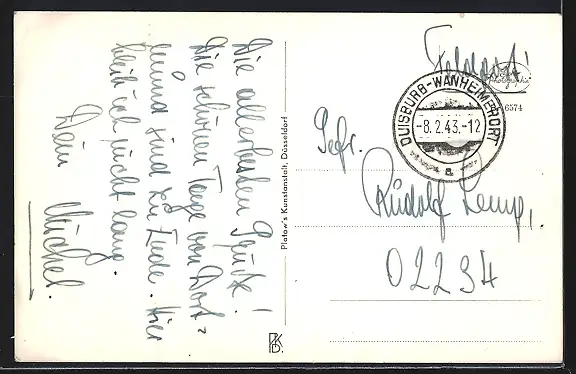 Die allerbesten Grüße!
Die schönen Tage von Dort=
mund sind zu Ende. Hier
bleib ich nicht lang.
Dein Michel.
Platow's Kunstanstalt, Düsseldorf
PKD.
Feldpost!
6574
DUISBURG-WANHEIMERORT
-8.2.43.-12
a
Gefr.
Rudolf Lemp,
02234